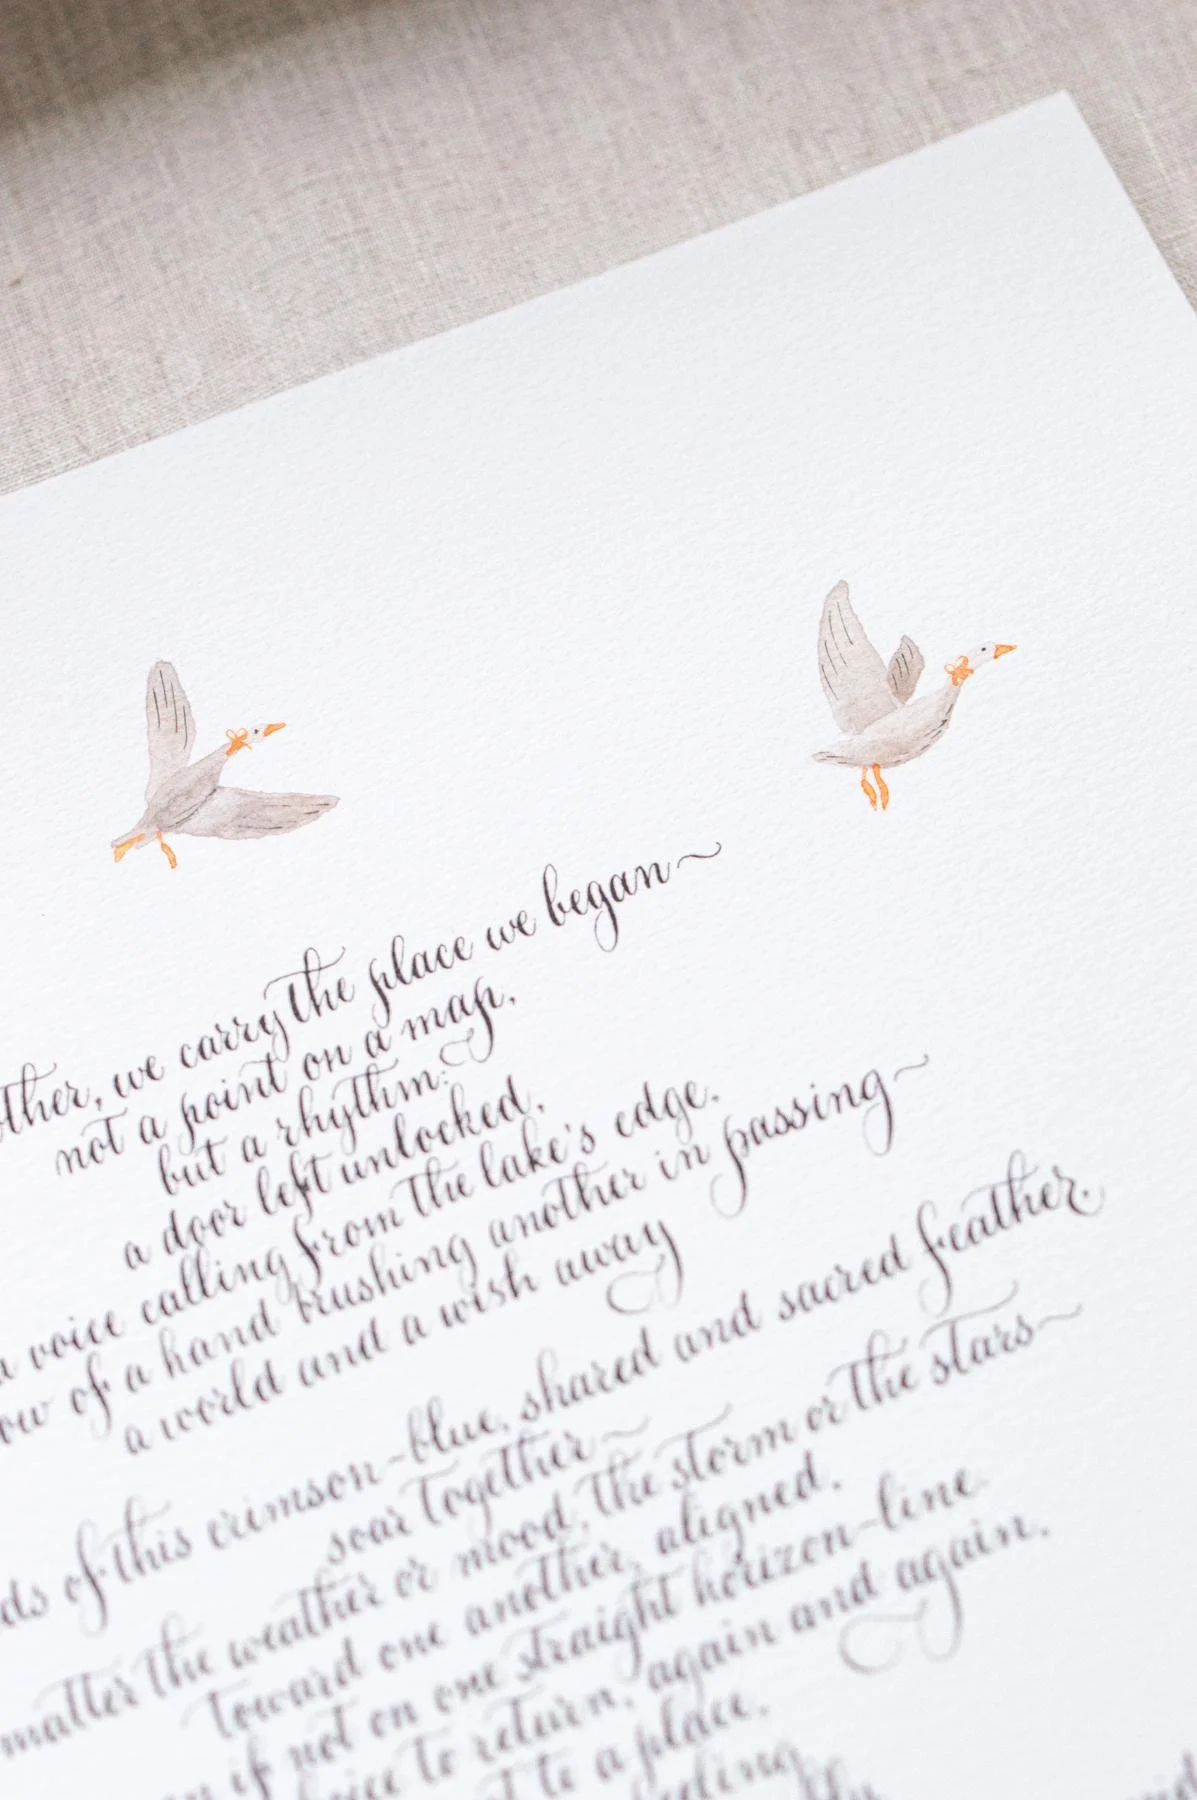 we carry the place we began~
not a point on a map,
but a rhythm:
a door left unlocked,
a voice calling from the lake's edge.
of a hand brushing another in passing~
a world and a wish away
of this crimson-blue, shared and sacred feather.
soar together~
matter the weather or mood, the storm or the stars~
toward one another, aligned.
if not on one straight horizon-line
to return, again and again.
to a place.